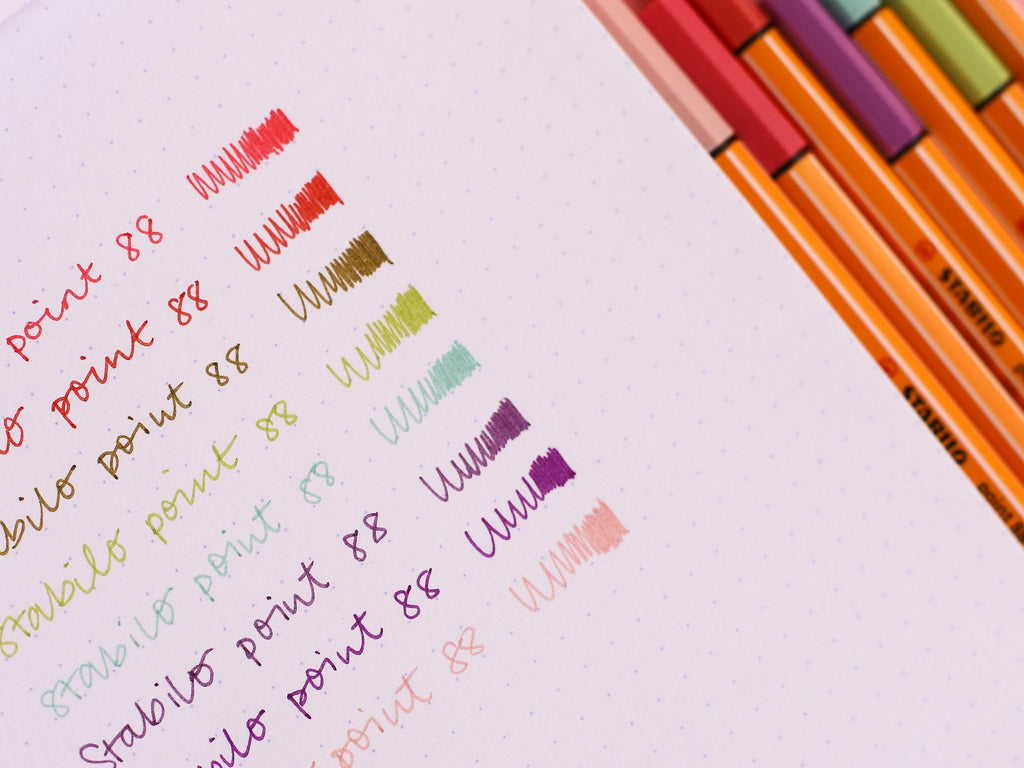 point 88
point 88
bilo point 88
stabilo point 88
stabilo point 88
Stabilo point 88
bilo point 88
point 88
STABILO
STABILO
point 8